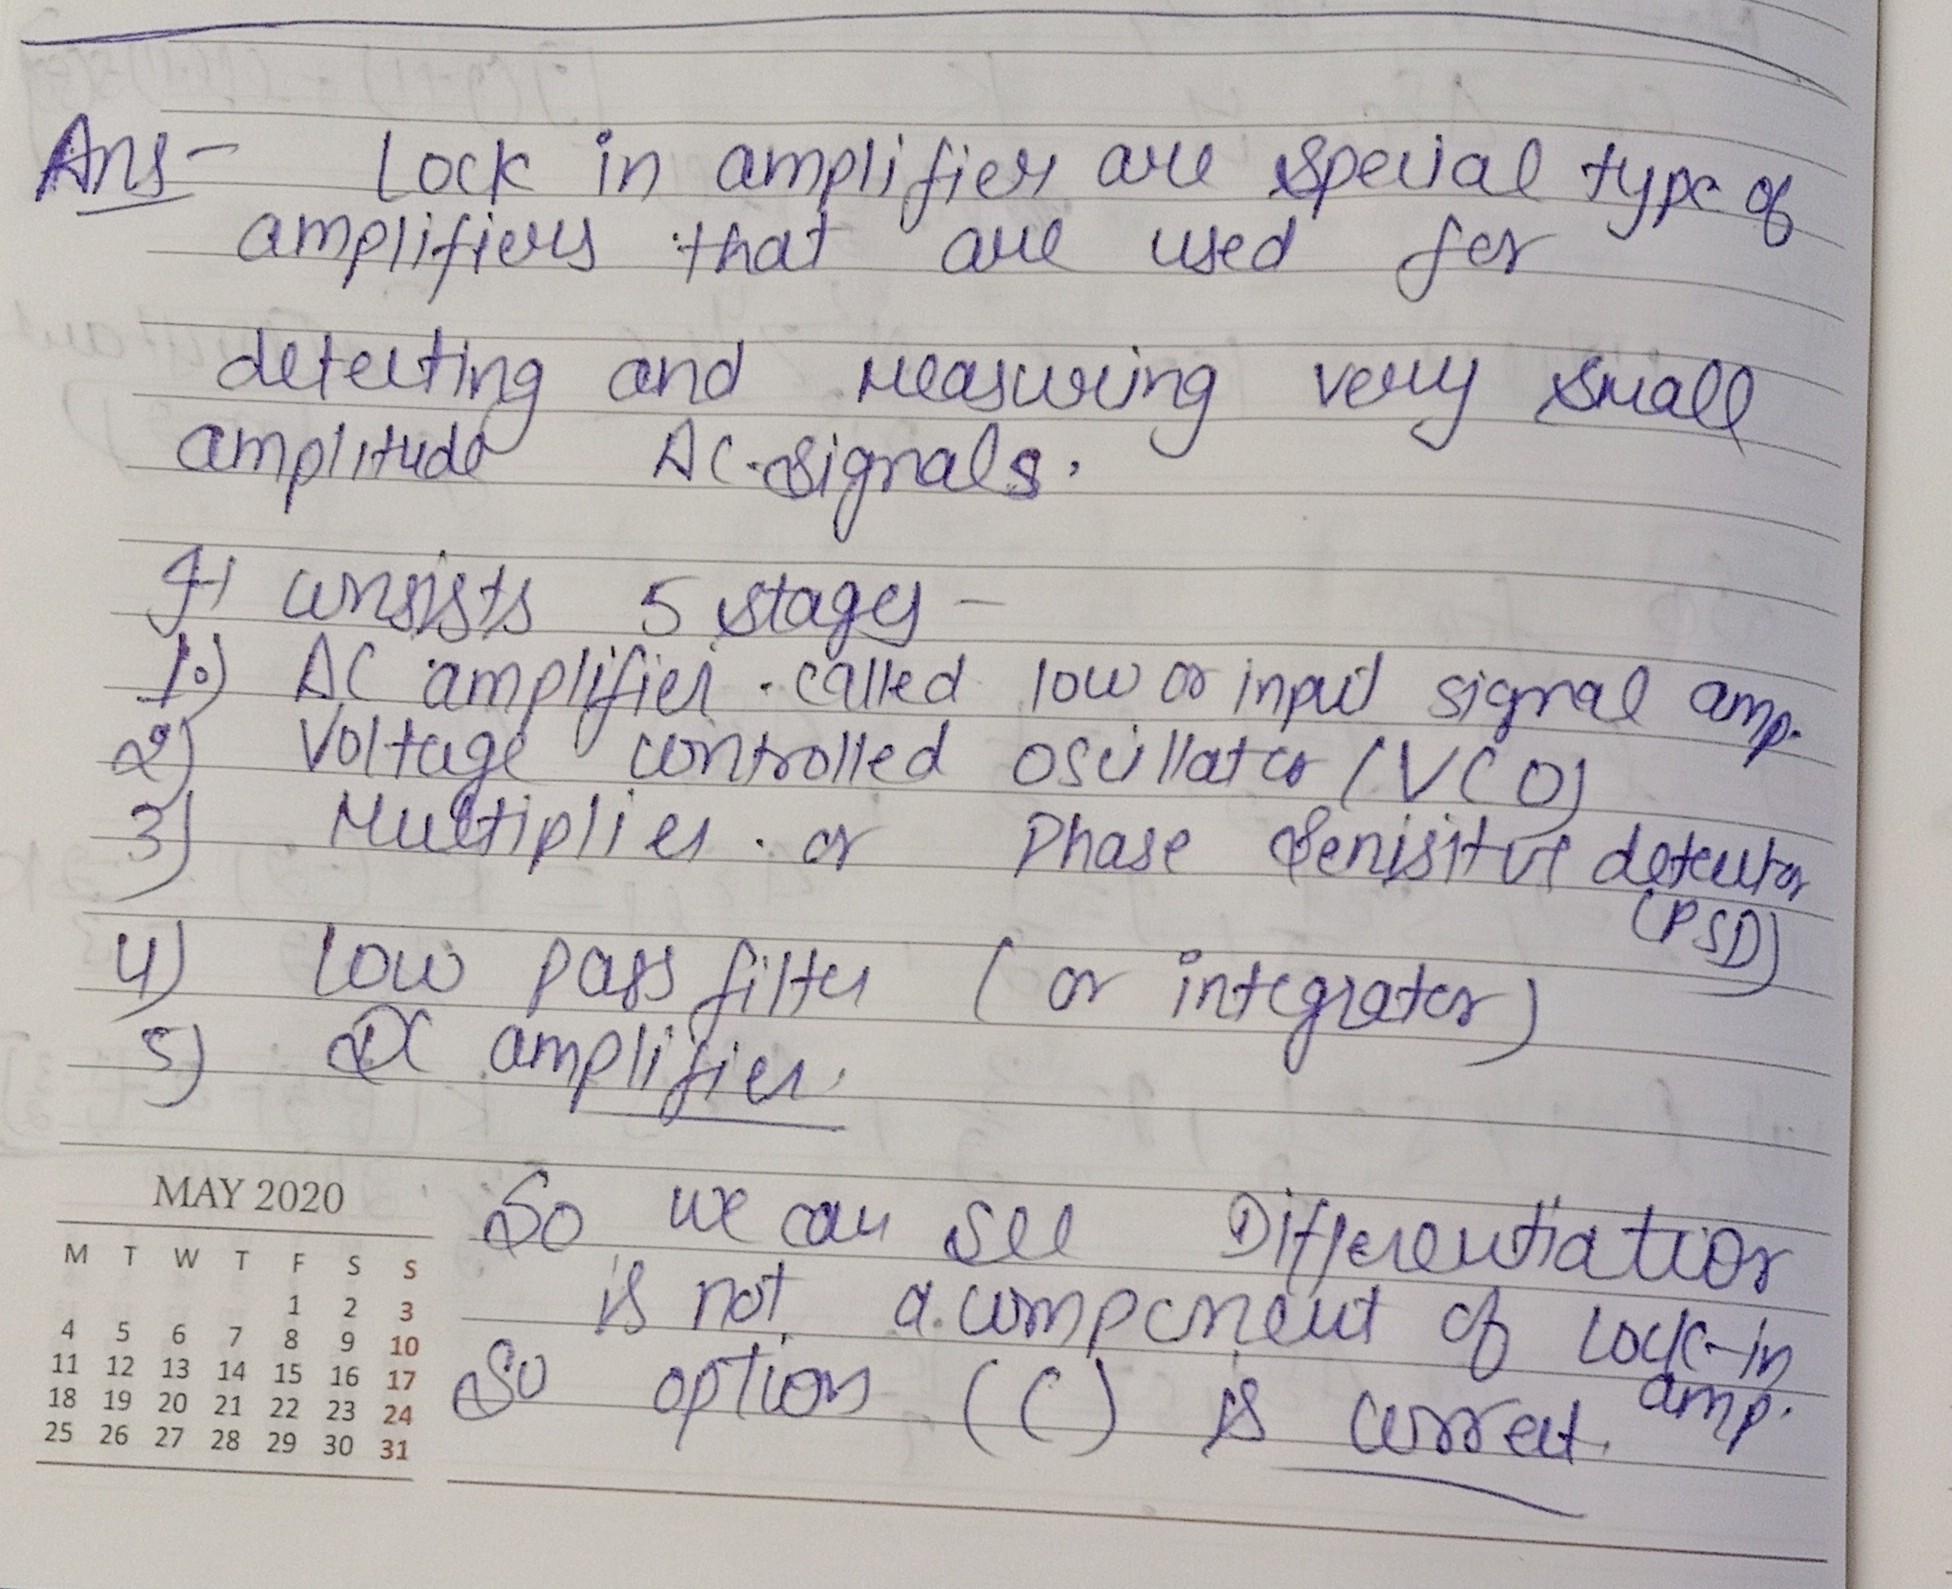 Ans- Lock in amplifier are special type of
amplifiers that are used for
detecting and measuring very small
amplitude AC signals.
It consists 5 stages -
1.) AC amplifier called low or input signal amp.
2) Voltage controlled oscillator (VCO)
3) Multiplier or Phase Senisitve detector
(PSD)
4) Low pass filter (or integrator)
5) DC amplifier.
So we can see Differentiatior
is not a component of Lock-in
amp.
So option (C) is correct.
MAY 2020
M T W T F S S
1 2 3
4 5 6 7 8 9 10
11 12 13 14 15 16 17
18 19 20 21 22 23 24
25 26 27 28 29 30 31